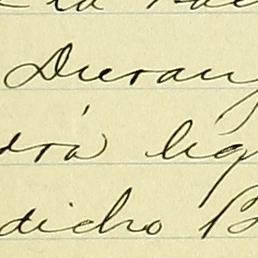 Duran
drá lig
dicho B